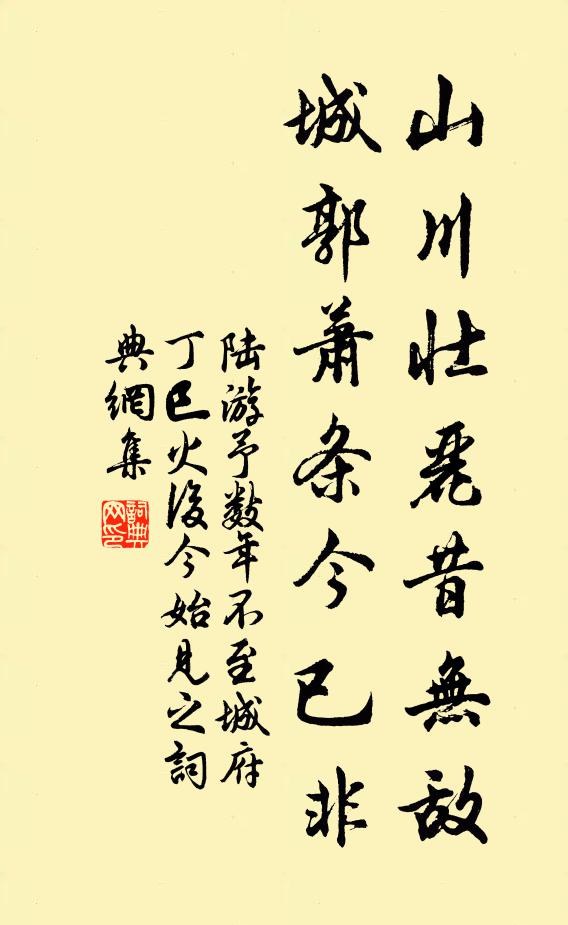 山川壮麗昔無敵
城郭蕭条今已非
陆游予数年不至城府
丁巳火後今始见之詞
典網集
詞典网印